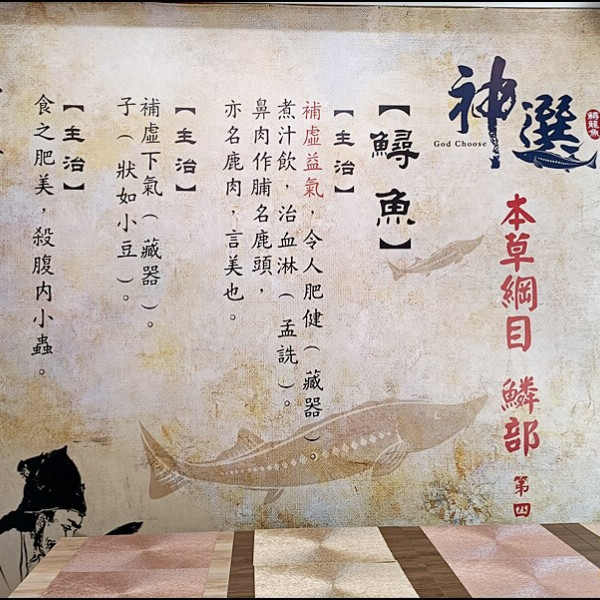 神選
God Choose
鱘龍魚
本草綱目 鱗部 第四
【鱘魚】
【主治】
補虛益氣，令人肥健（藏器）。
煮汁飲，治血淋（孟詵）。
鼻肉作脯名鹿頭，
亦名鹿肉，言美也。
【主治】
補虛下氣（藏器）。
子（狀如小豆）。
【主治】
食之肥美，殺腹內小蟲。